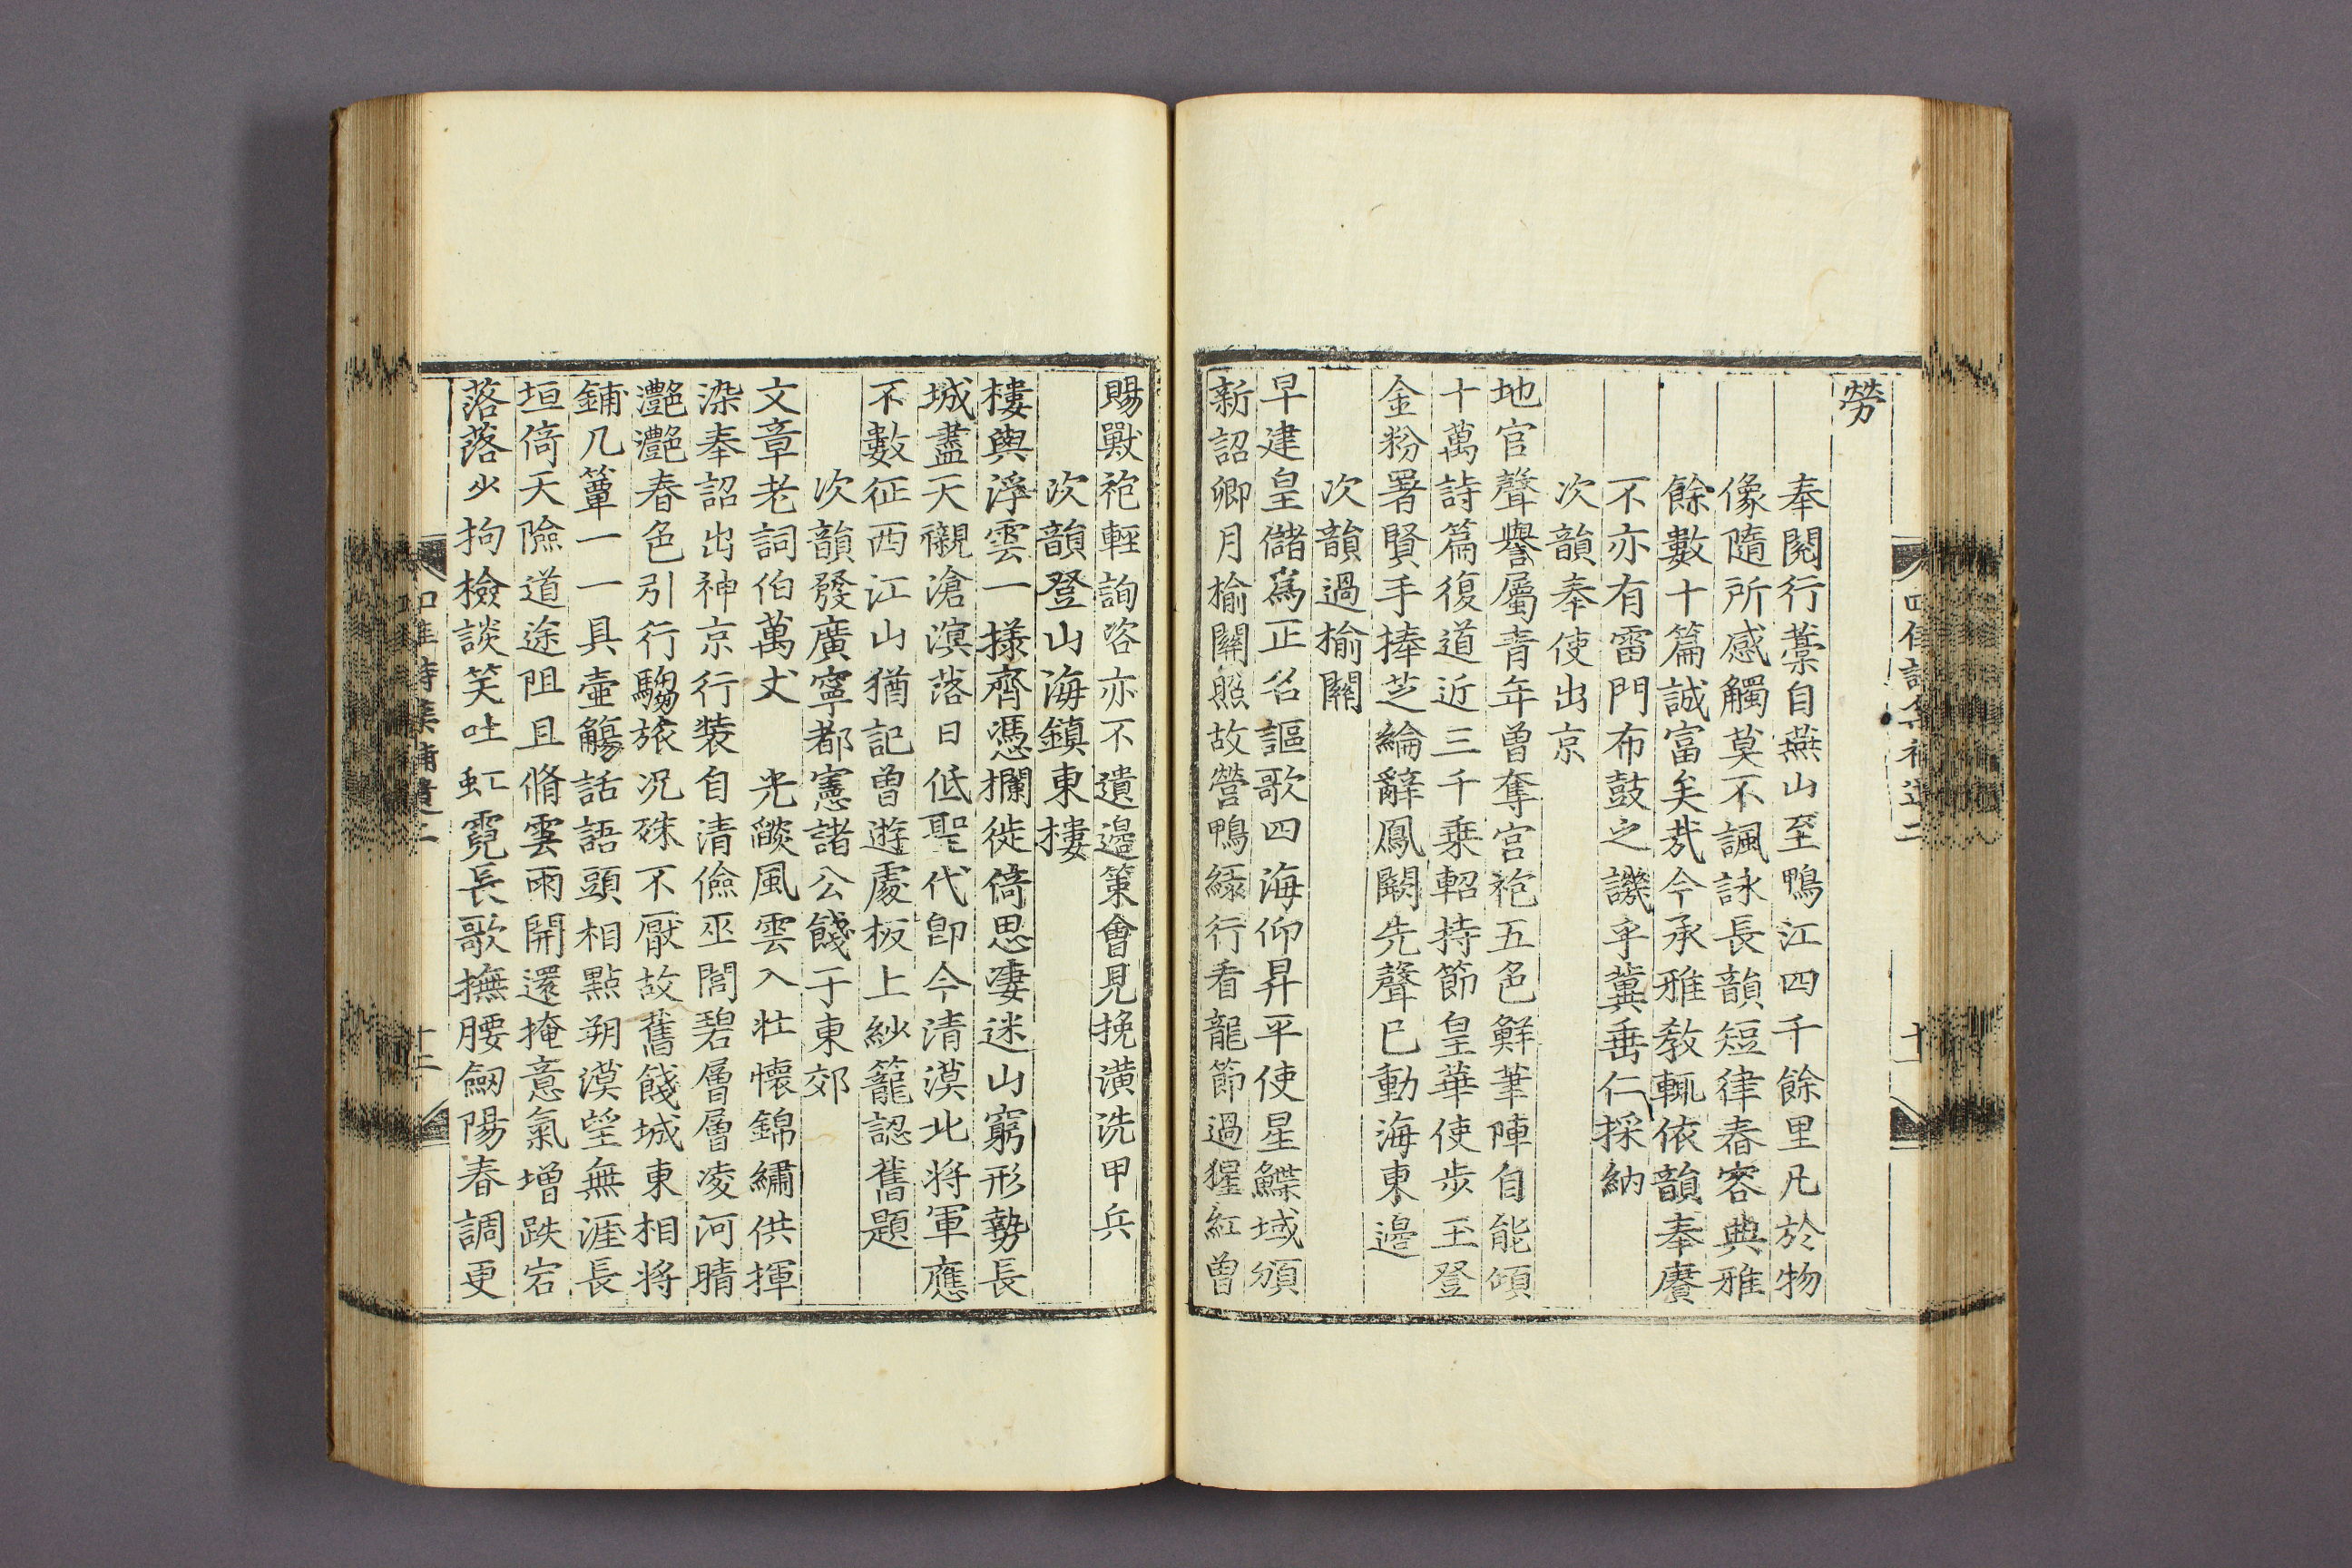 勞
奉閱行藁自燕山至鴨江四千餘里凡於物
像隨所感觸莫不諷詠長韻短律舂容典雅
餘數十篇誠富矣㢤今承雅教輒依韻奉賡
不亦有雷門布鼓之譏乎冀垂仁採納
次韻奉使出京
地官聲譽屬青年曾奪宮袍五色鮮筆陣自能傾
十萬詩篇復道近三千乗軺持節皇華使步玉登
金粉署賢手捧芝綸辭鳳闕先聲已動海東邊
次韻過榆關
早建皇儲爲正名謳歌四海仰昇平使星鰈域頒
新詔卿月榆關照故營鴨綠行看龍節過猩紅曾
賜獸袍輕詢咨亦不遺邊策會見挽潢洗甲兵
次韻登山海鎮東樓
樓與浮雲一㨾齊憑欄徙倚思凄迷山窮形勢長
城盡天襯滄溟落日低聖代卽今清漠北将軍應
不數征西江山猶記曾遊處板上紗籠認舊題
次韻發廣寧都憲諸公餞于東郊
文章老詞伯萬丈光燄風雲入壯懷錦繡供揮
染奉詔出神京行裝自清儉巫閭碧層層凌河晴
灧灧春色引行騶旅况殊不厭故舊餞城東相将
鋪几簟一一具壷觴話語頭相點朔漠望無涯長
垣倚天險道途阻且脩雲雨開還掩意氣増跌宕
落落少拘檢談笑吐虹霓長歌撫腰劒陽春調更